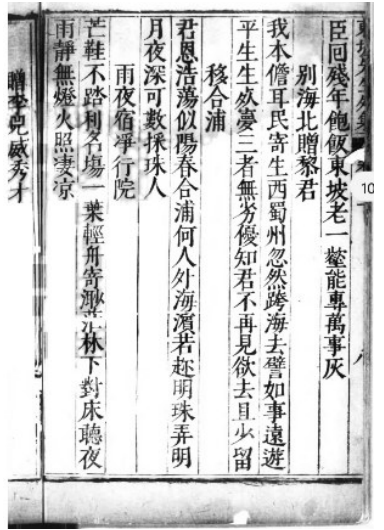 臣囘殘年飽飯東坡老一壑能專萬事灰
別海北贈黎君
我本儋耳民寄生西蜀州忽然跨海去譬如事遠遊
平生生死夢三者無劣優知君不再見欲去且少留
移合浦
君恩浩蕩似陽春合浦何人外海濵若趂明珠弄明
月夜深可數採珠人
雨夜宿淨行院
芒鞋不踏利名塲一葉輕舟寄渺茫林下對床聽夜
雨靜無燈火照凄凉
贈李兕威秀才
10